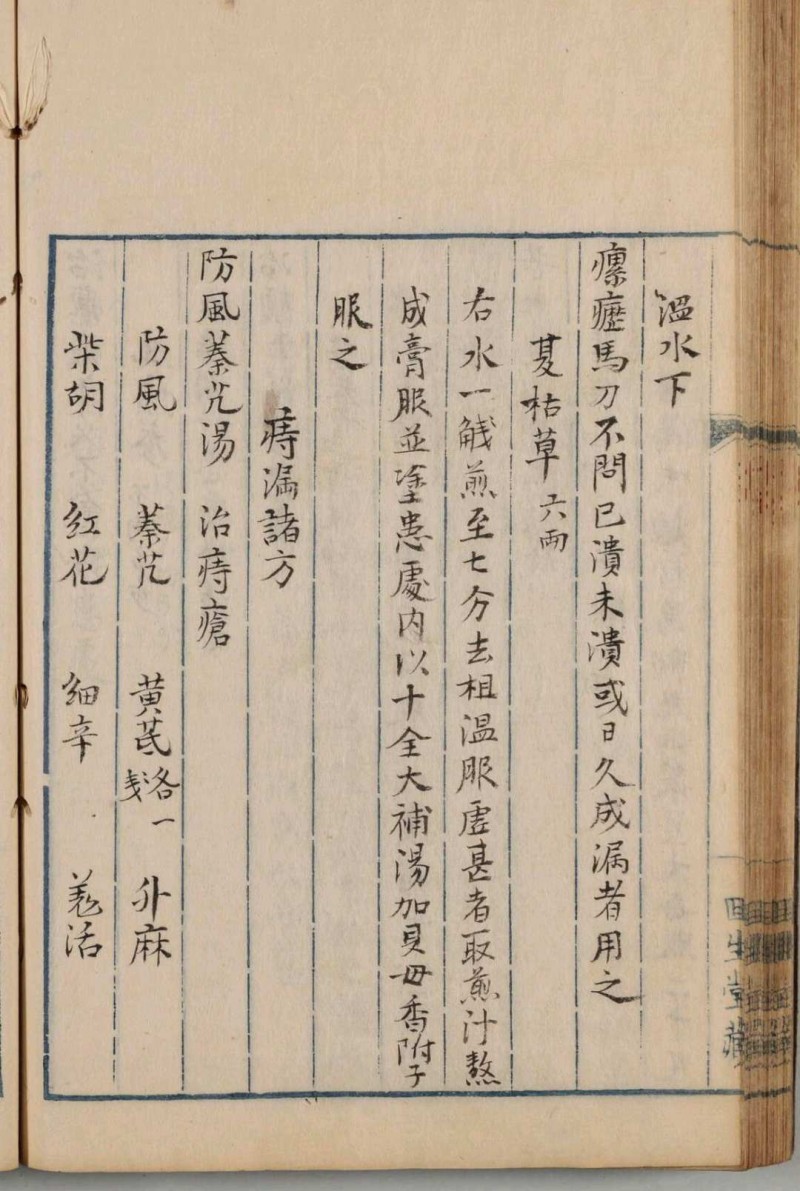 溫水下
瘰癧馬刀不問已潰未潰或日久成漏者用之
夏枯草 六兩
右水一觥煎至七分去柤溫服虛甚者取煎汁熬
成膏服並塗患處内以十全大補湯加貝母香附子
服之
痔漏諸方
防風蓁艽湯 治痔瘡
防風 蓁艽 黄芪各一戔 升麻
柴胡 红花 细辛 羌活
田生堂藏